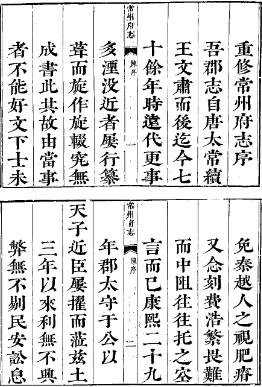 重修常州府志序
吾郡志自唐太常續
王文肅而後迄今七
十餘年時遠代更事
常州府志
陳序
多湮沒近者屢行纂
葺而旋作旋輟究無
成書此其故由當事
者不能好文下士未
免秦越人之視肥瘠
又念刻費浩繁畏難
而中阻往往托之空
言而已康熙二十九
常州府志
陳序
年郡太守于公以
天子近臣屢擢而蒞茲土
三年以來利無不興
弊無不剔民安訟息